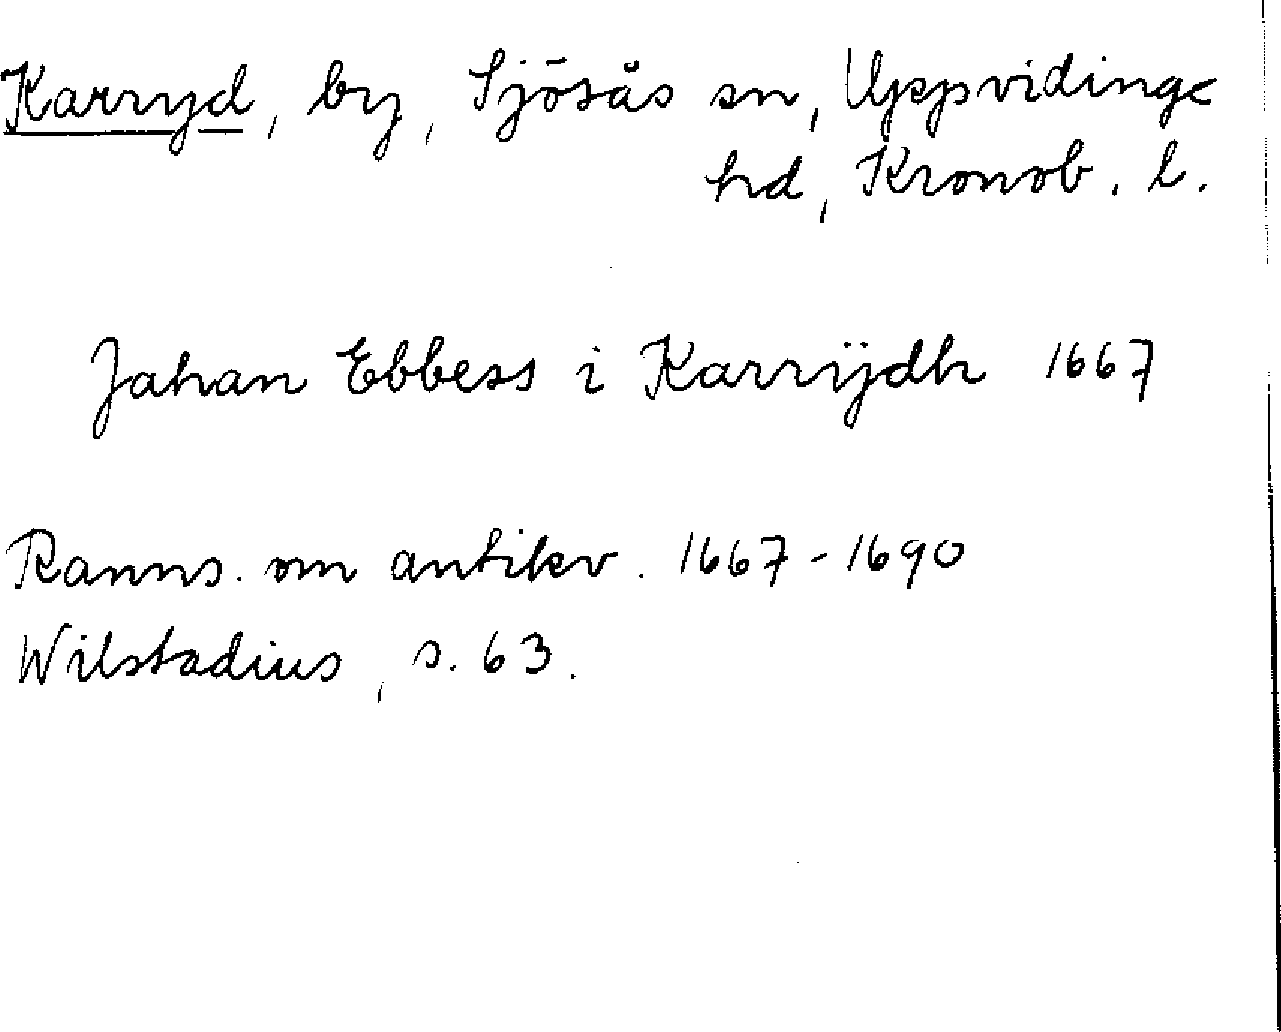 Karryd, by, Sjösås sn, Uppvidinge
hd, Kronob. l.
Jahan Ebbess i Karrÿdh 1667
Ranns. om antikv. 1667-1690
Wilstadius, s. 63.